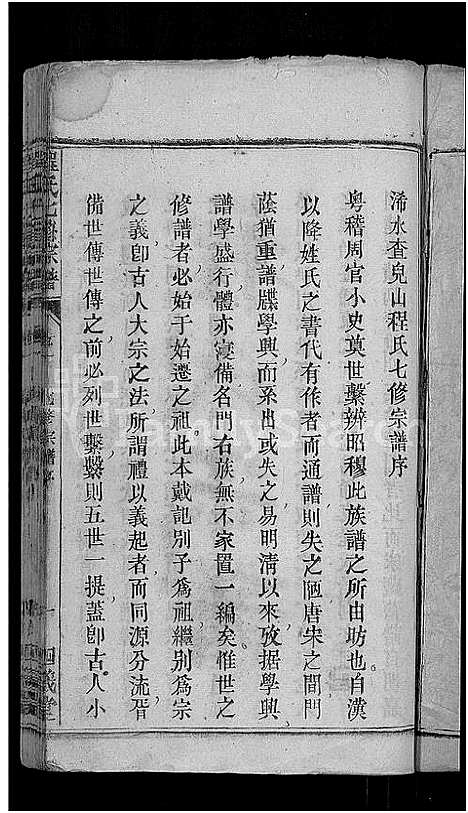 浠水查兒山程氏七修宗譜序
粵稽周官小史奠世繫辨昭穆此族譜之所由昉也自漢
以降姓氏之書代有作者而通譜則失之陋唐宋之間門
蔭猶重譜牒學興而系出或失之易明清以來攷据學興
譜學盛行體亦寖備名門右族無不家置一編矣惟世之
修譜者必始于始遷之祖此本戴記別子爲祖繼別爲宗
之義卽古人大宗之法所謂禮以義起者而同源分流胥
備世傳世傳之前必列世繫繫則五世一提蓋卽古人小
程氏七修宗譜
一
四義堂
FamilySearch